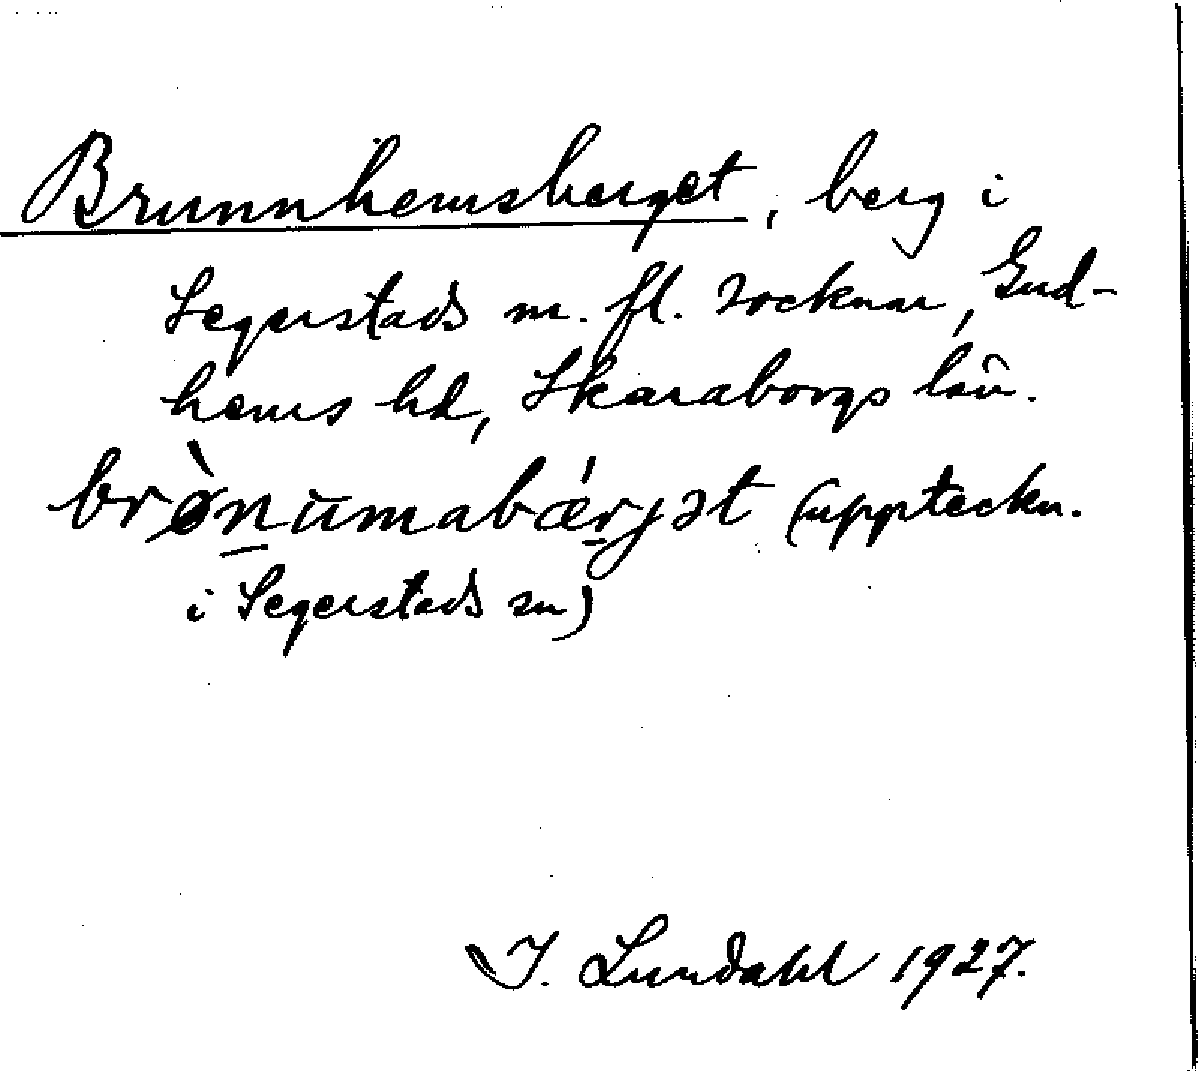 Brunnhemsberget, berg i
Segerstads m. fl. socknar, Gud-
hems hd, Skaraborgs län.
brø̀n̲umabǽr̲jət (uppteckn.
i Segerstads sn)
I. Lundahl 1927.